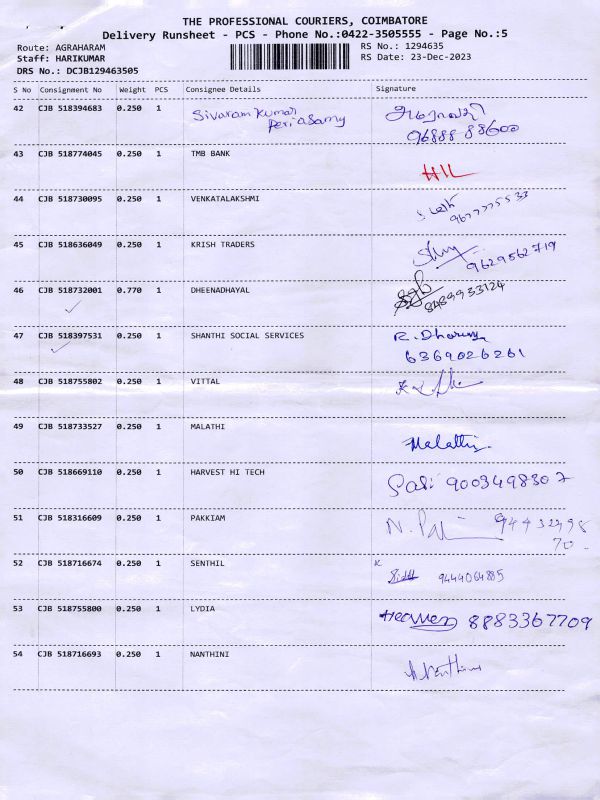 THE PROFESSIONAL COURIERS, COIMBATORE
Delivery Runsheet - PCS - Phone No.:0422-3505555 - Page No.:5
Route: AGRAHARAM RS No.: 1294635
Staff: HARIKUMAR RS Date: 23-Dec-2023
DRS No.: DCJB129463505
S No Consignment No Weight PCS Consignee Details Signature
42 CJB 518394683 0.250 1 Sivaram Kumar
Periasamy 96888 88600
43 CJB 518774045 0.250 1 TMB BANK
44 CJB 518730095 0.250 1 VENKATALAKSHMI
9677775533
45 CJB 518636049 0.250 1 KRISH TRADERS
9629562719
46 CJB 518732001 0.770 1 DHEENADHAYAL
8489933124
47 CJB 518397531 0.250 1 SHANTHI SOCIAL SERVICES R. Dharun
6369026261
48 CJB 518755802 0.250 1 VITTAL
49 CJB 518733527 0.250 1 MALATHI
Malathi
50 CJB 518669110 0.250 1 HARVEST HI TECH
9003498307
51 CJB 518316609 0.250 1 PAKKIAM N. Pa 94432498
70
52 CJB 518716674 0.250 1 SENTHIL K
9444064885
53 CJB 518755800 0.250 1 LYDIA
8883367709
54 CJB 518716693 0.250 1 NANTHINI
Nanthini